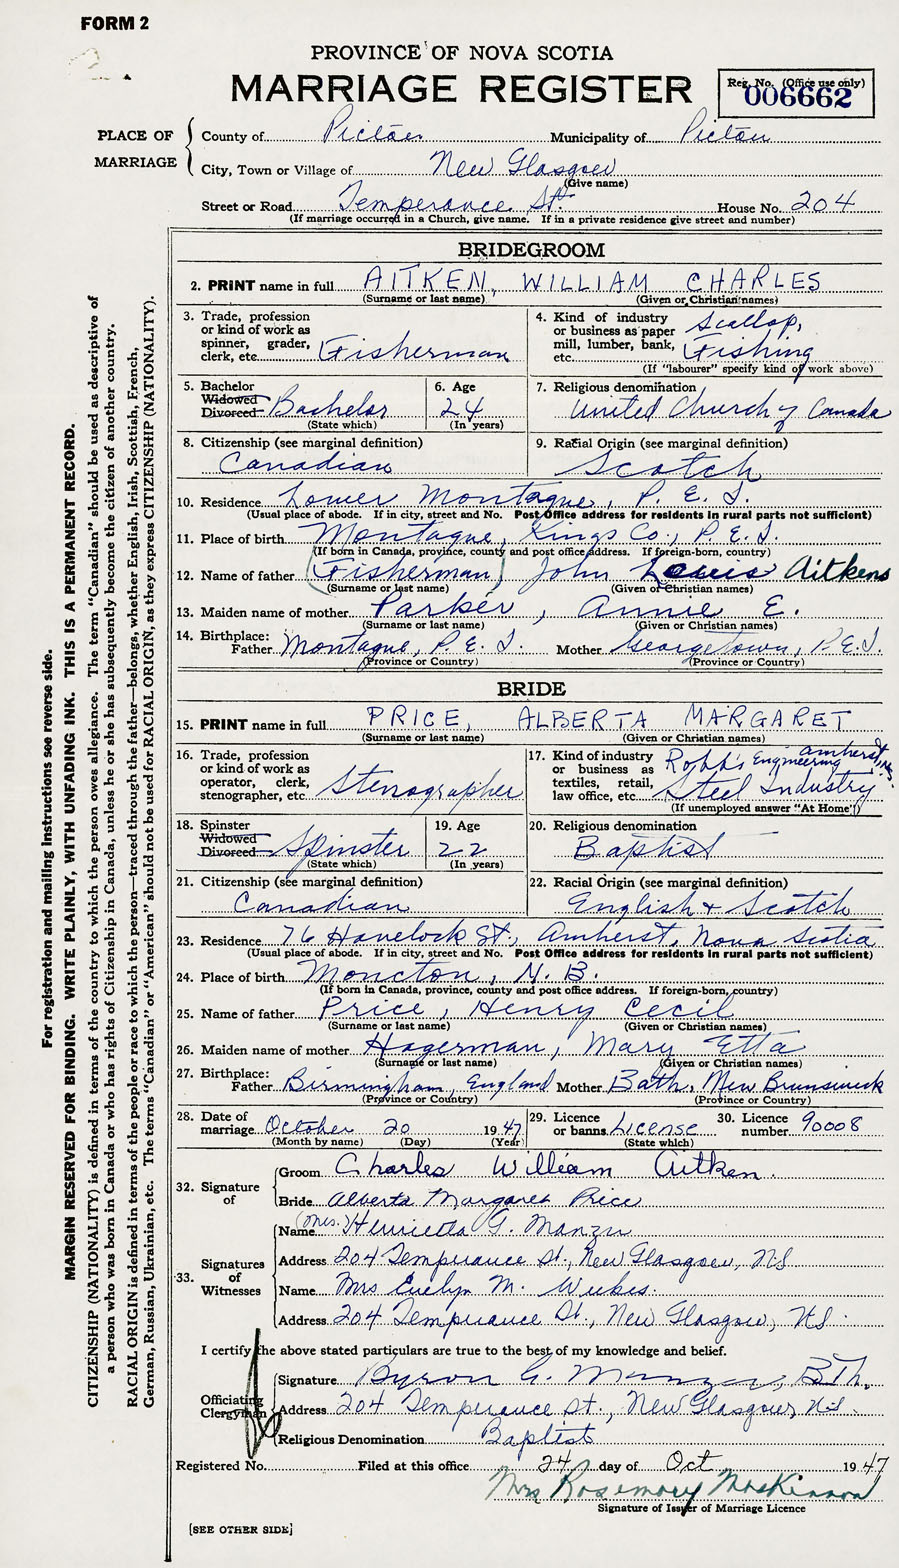 FORM 2
PROVINCE OF NOVA SCOTIA
MARRIAGE REGISTER
Reg. No. (Office use only)
006662
PLACE OF MARRIAGE
County of Pictou Municipality of Pictou
City, Town or Village of New Glasgow
(Give name)
Street or Road Temperance St. House No. 204
(If marriage occurred in a Church, give name. If in a private residence give street and number)
BRIDEGROOM
2. PRINT name in full AITKEN, WILLIAM CHARLES
(Surname or last name) (Given or Christian names)
3. Trade, profession or kind of work as spinner, grader, clerk, etc. Fisherman
4. Kind of industry or business as paper mill, lumber, bank, etc. Scallop, Fishing
(If "labourer" specify kind of work above)
5. Bachelor Widowed Divorced Bachelor
(State which)
6. Age 24
(In years)
7. Religious denomination
United Church of Canada
8. Citizenship (see marginal definition)
Canadian
9. Racial Origin (see marginal definition)
Scotch
10. Residence Lower Montague, P. E. I.
(Usual place of abode. If in city, street and No. Post Office address for residents in rural parts not sufficient)
11. Place of birth Montague, Kings Co., P. E. I.
(If born in Canada, province, county and post office address. If foreign-born, country)
12. Name of father (Fisherman) John Louis Aitkens
(Surname or last name) (Given or Christian names)
13. Maiden name of mother Parker, Annie E.
(Surname or last name) (Given or Christian names)
14. Birthplace:
Father Montague, P. E. I. Mother Georgetown, P. E. I.
(Province or Country) (Province or Country)
BRIDE
15. PRINT name in full PRICE, ALBERTA MARGARET
(Surname or last name) (Given or Christian names)
16. Trade, profession or kind of work as operator, clerk, stenographer, etc. Stenographer
17. Kind of industry or business as textiles, retail, law office, etc. Robb's Engineering Amherst, N.S. Steel Industry
(If unemployed answer "At Home")
18. Spinster Widowed Divorced Spinster
(State which)
19. Age 22
(In years)
20. Religious denomination
Baptist
21. Citizenship (see marginal definition)
Canadian
22. Racial Origin (see marginal definition)
English & Scotch
23. Residence 76 Havelock St., Amherst, Nova Scotia
(Usual place of abode. If in city, street and No. Post Office address for residents in rural parts not sufficient)
24. Place of birth Moncton, N. B.
(If born in Canada, province, county and post office address. If foreign-born, country)
25. Name of father Price, Henry Cecil
(Surname or last name) (Given or Christian names)
26. Maiden name of mother Hagerman, Mary Etta
(Surname or last name) (Given or Christian names)
27. Birthplace:
Father Birmingham, England Mother Bath, New Brunswick
(Province or Country) (Province or Country)
28. Date of marriage October 20 1947
(Month by name) (Day) (Year)
29. Licence or banns License
(State which)
30. Licence number 90008
32. Signature of
Groom Charles William Aitken.
Bride Alberta Margaret Price
33. Signatures of Witnesses
Name (Mrs.) Henrietta G. Manzer
Address 204 Temperance St., New Glasgow, N.S
Name Mrs Evelyn M. Weekes.
Address 204 Temperance St., New Glasgow, N.S.
I certify the above stated particulars are true to the best of my knowledge and belief.
Officiating Clergyman
Signature Byron G. Manzer, B.Th.
Address 204 Temperance St., New Glasgow, N.S.
Religious Denomination Baptist
Registered No. Filed at this office 24 day of Oct 1947
Mrs Rosemary MacKinnon
Signature of Issuer of Marriage Licence
[SEE OTHER SIDE]
For registration and mailing instructions see reverse side.
MARGIN RESERVED FOR BINDING. WRITE PLAINLY, WITH UNFADING INK. THIS IS A PERMANENT RECORD.
CITIZENSHIP (NATIONALITY) is defined in terms of the country to which the person owes allegiance. The term "Canadian" should be used as descriptive of
a person who was born in Canada or who has rights of Citizenship in Canada, unless he or she has subsequently become the citizen of another country.
RACIAL ORIGIN is defined in terms of the people or race to which the person—traced through the father—belongs, whether English, Irish, Scottish, French,
German, Russian, Ukrainian, etc. The terms "Canadian" or "American" should not be used for RACIAL ORIGIN, as they express CITIZENSHIP (NATIONALITY).